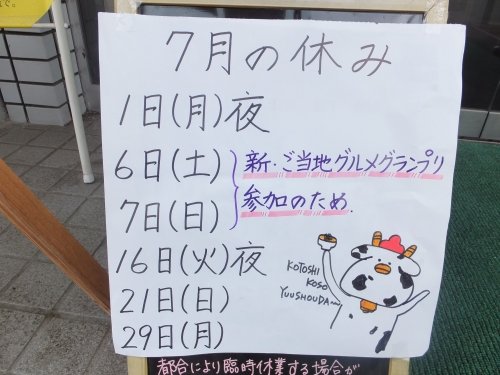 7月の休み
1日(月)夜
6日(土)
7日(日)
新・ご当地グルメグランプリ
参加のため.
16日(火)夜
21日(日)
29日(月)
KOTOSHI
KOSO
YUUSHOUDA〜
都合により臨時休業する場合が